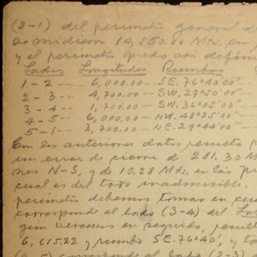 (2-1) del perimetro general d
se midieron 14,550.00 Mts, en
y el perimetro quedo asi defin
Lados Longitudes Rumbos
1 - 2 -- 6,000.00 -- S E. 76°40'00"
2 - 3 -- 4,700.00 -- SW. 27°50'00"
3 - 4 -- 1,700.00 -- SW. 36°05'00"
4 - 5 -- 6,000.00 -- NW. 48°25'00"
5 - 1 -- 3,700.00 -- NE. 29°44'00"
Con los anteriores datos resulta
un error de cierre de 281.30 M
nes N-S, y de 10.28 Mts. en las
cual es del todo inadmisible.
perimetro debemos tomar en cue
corresponde al lado (3-4) del
gun veremos en seguida,
6,115.22 y rumbo SE.76°40', y